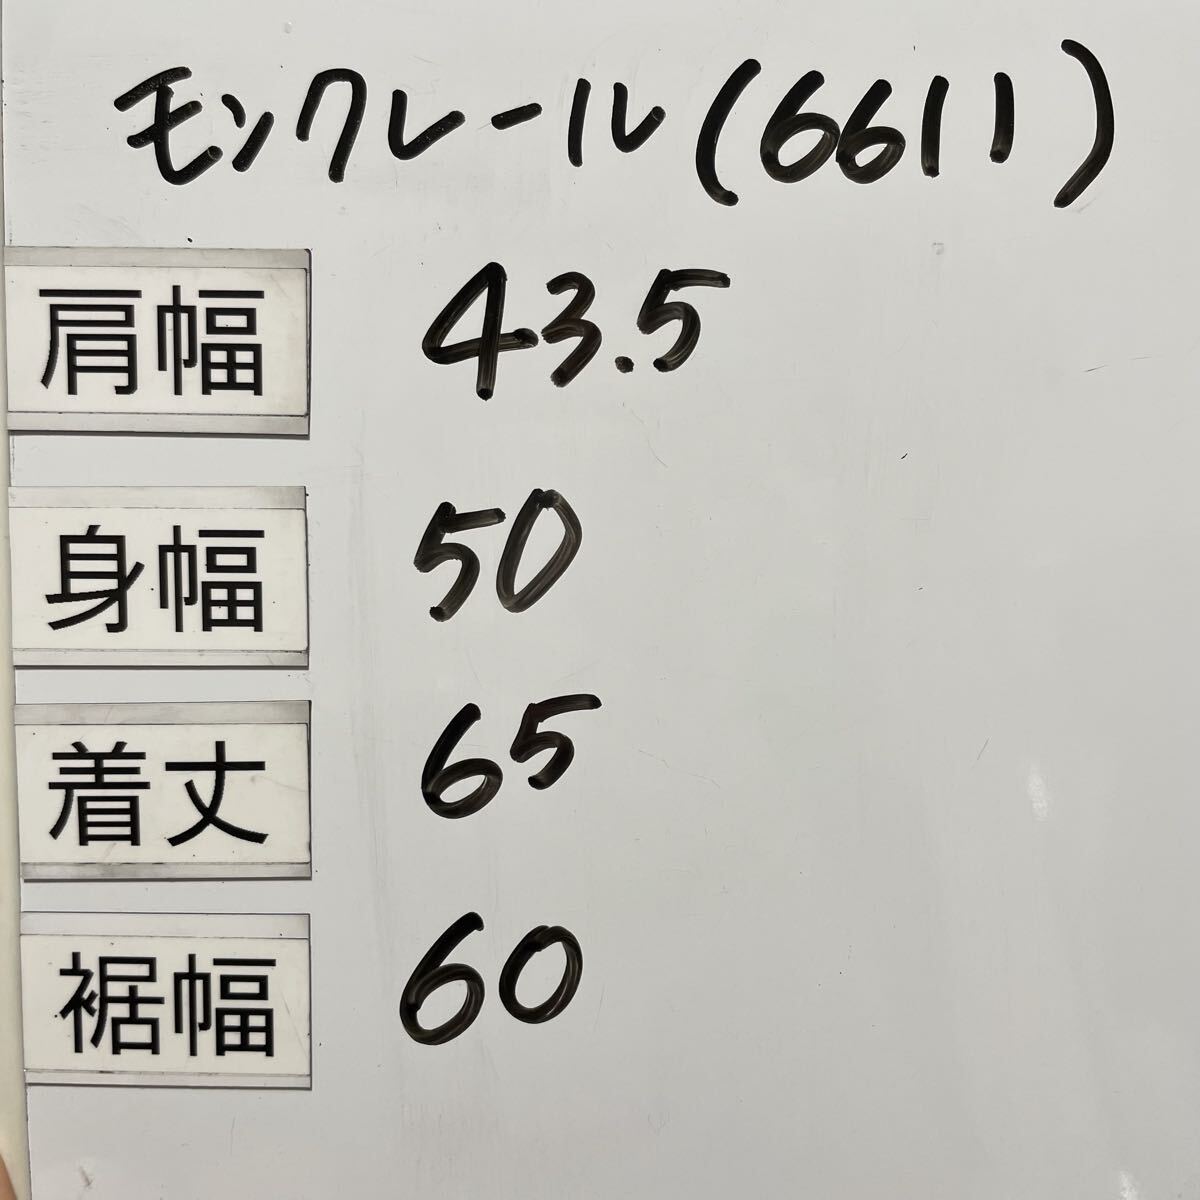 モンクレール(6611)
肩幅 43.5
身幅 50
着丈 65
裾幅 60